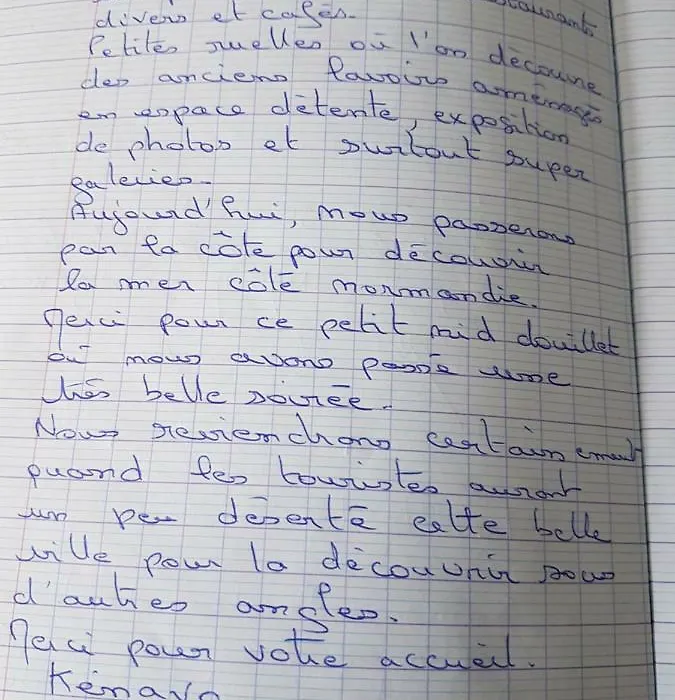 divers et cafés.
Petites ruelles où l'on découvre
des anciens lavoirs aménagés
en espace détente, exposition
de photos et surtout super
galeries.
Aujourd'hui, nous passerons
par la côte pour découvrir
la mer côté normandie.
Merci pour ce petit nid douillet
où nous avons passé une
très belle soirée.
Nous reviendrons certainement
quand les touristes auront
un peu déserté cette belle
ville pour la découvrir sous
d'autres angles.
Merci pour votre accueil.
Kénavo